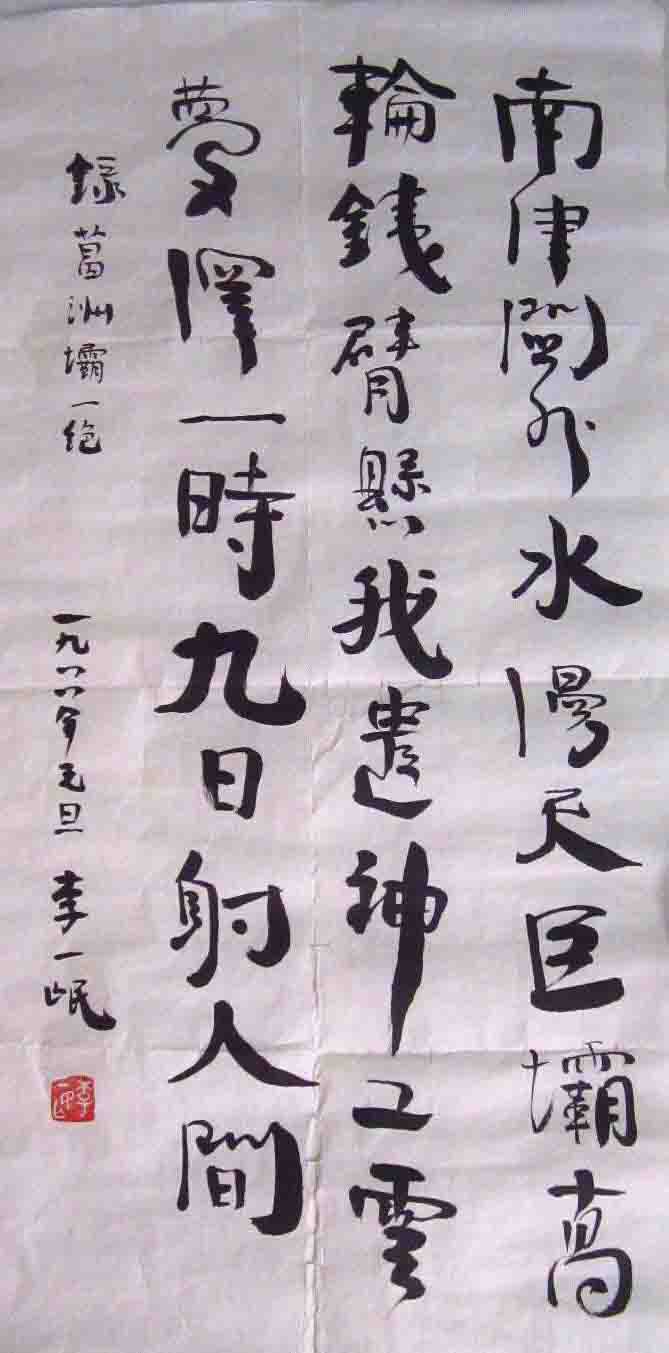 南津關外水漫天巨壩高
輪鐵臂懸我遣神工雲
夢澤一時九日射人間
録葛洲壩一絶
一九八八年元旦 李一氓
李一氓